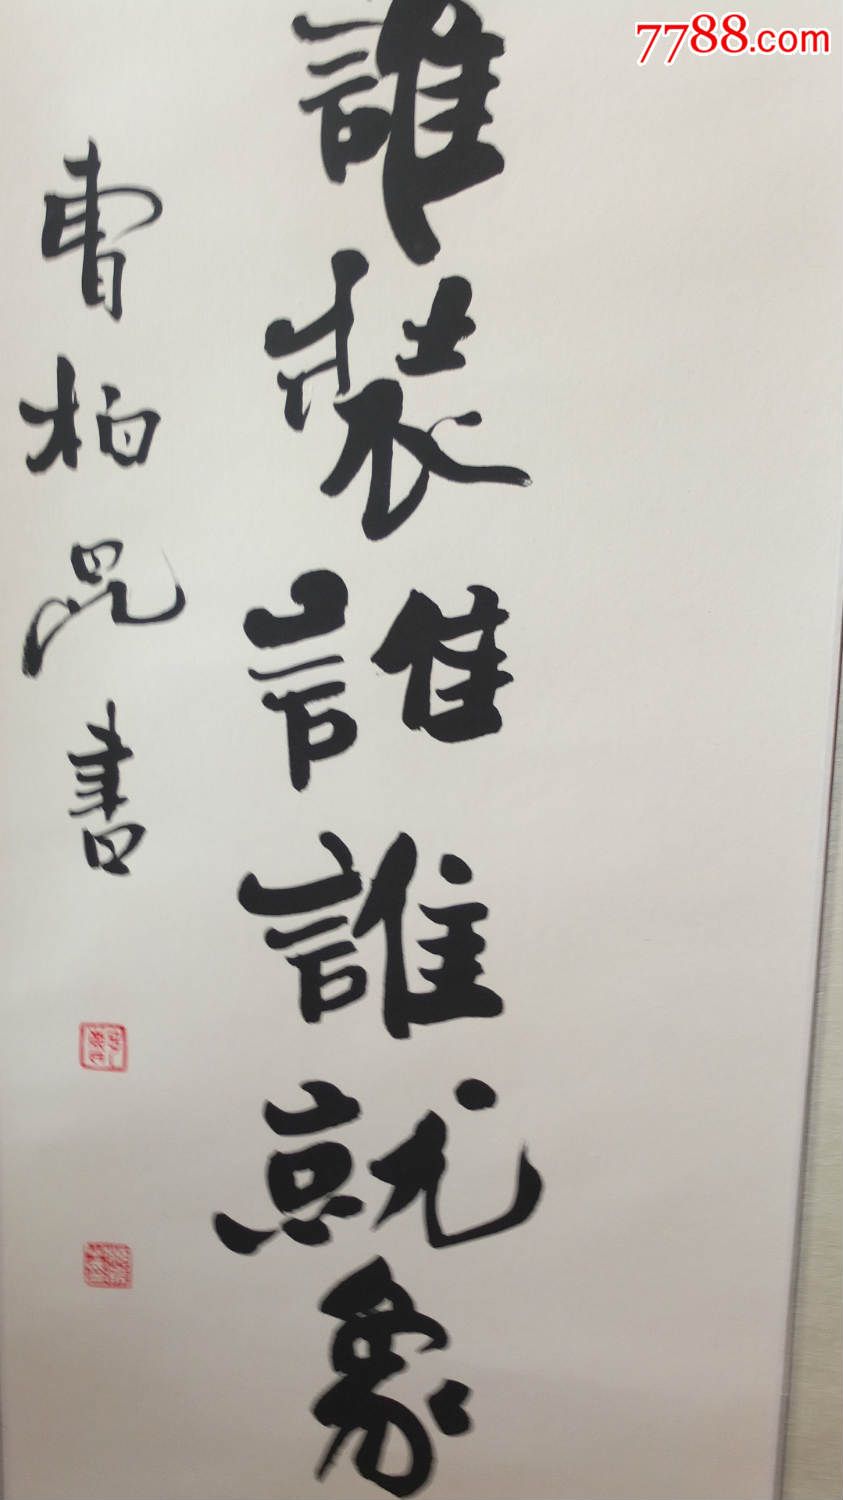 7788.com
誰裝誰誰就象
曹柏崑書